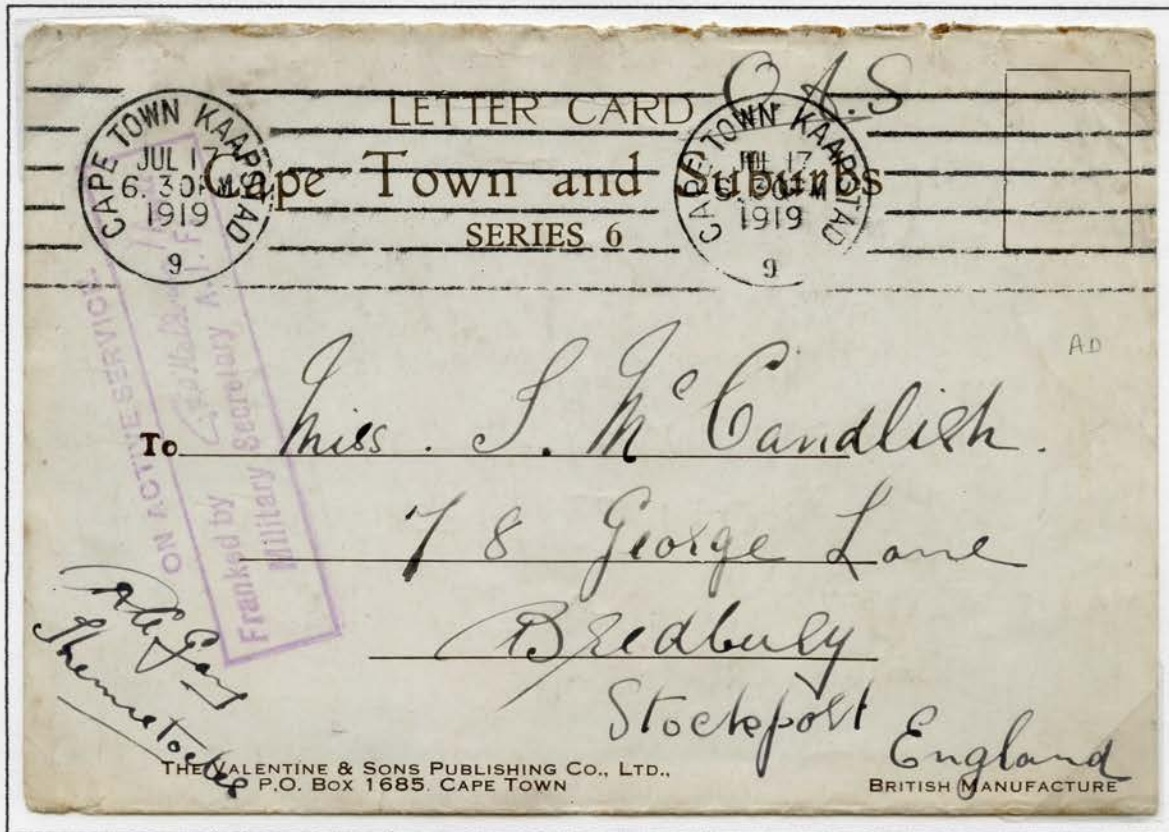 O.A.S
LETTER CARD
Cape Town and Suburbs
SERIES 6
CAPE TOWN KAAPSTAD
JUL 17
6. 30 PM
1919
9
CAPE TOWN KAAPSTAD
JUL 17
6. 30 PM
1919
9
ON ACTIVE SERVICE.
Franked by
Military Secretary A.I.F.
AD
To Miss. S. McCandlish.
78 George Lane
Bredbury
Stockport
England
THE VALENTINE & SONS PUBLISHING CO., LTD.,
P.O. BOX 1685. CAPE TOWN
BRITISH MANUFACTURE